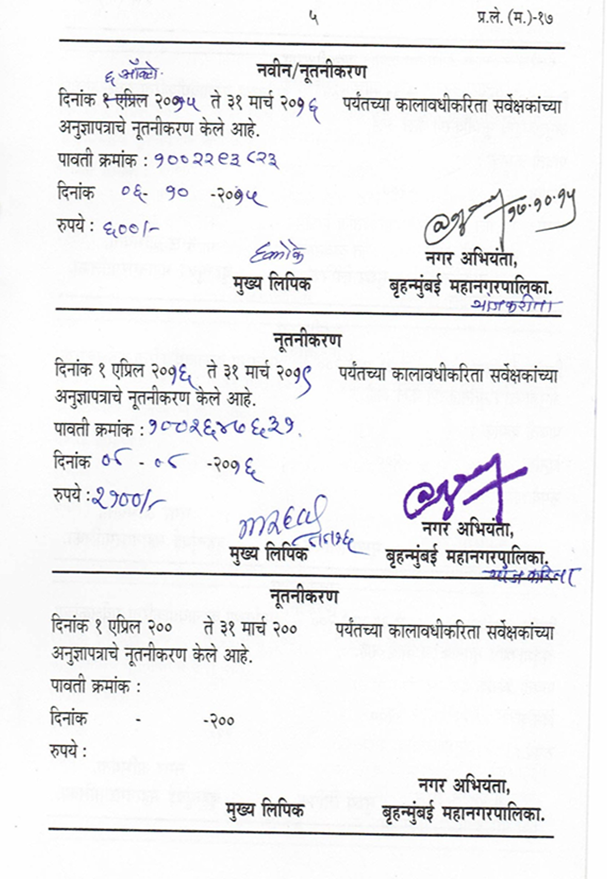 ५ प्र.ले. (म.)-१७
नवीन/नूतनीकरण
६ ऑक्टो.
दिनांक १ एप्रिल २०१५ ते ३१ मार्च २०१६ पर्यंतच्या कालावधीकरिता सर्वेक्षकांच्या
अनुज्ञापत्राचे नूतनीकरण केले आहे.
पावती क्रमांक : १००२२९३८२३
दिनांक ०६- १० -२०१५
रुपये : ६००/-
१७.१०.१५
नगर अभियंता,
मुख्य लिपिक बृहन्मुंबई महानगरपालिका.
यांजकरीता
नूतनीकरण
दिनांक १ एप्रिल २०१६ ते ३१ मार्च २०१९ पर्यंतच्या कालावधीकरिता सर्वेक्षकांच्या
अनुज्ञापत्राचे नूतनीकरण केले आहे.
पावती क्रमांक : १००२६४७६३१
दिनांक ०८ - ०८ -२०१६
रुपये : २१००/-
नगर अभियंता,
मुख्य लिपिक बृहन्मुंबई महानगरपालिका.
यांजकरिता
नूतनीकरण
दिनांक १ एप्रिल २०० ते ३१ मार्च २०० पर्यंतच्या कालावधीकरिता सर्वेक्षकांच्या
अनुज्ञापत्राचे नूतनीकरण केले आहे.
पावती क्रमांक :
दिनांक - -२००
रुपये :
नगर अभियंता,
मुख्य लिपिक बृहन्मुंबई महानगरपालिका.